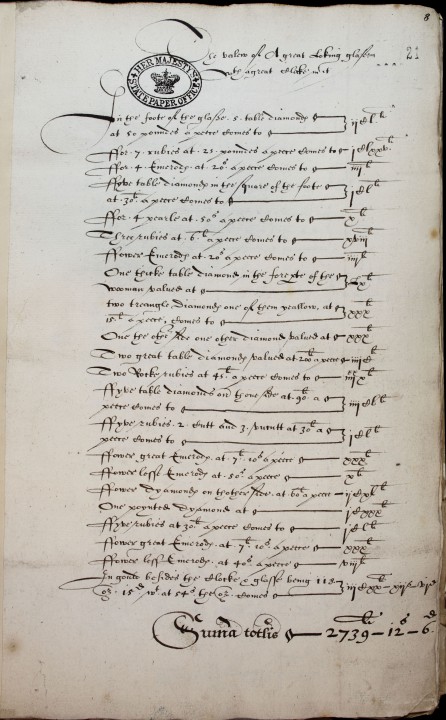 8
21
The valew of A great loking glasse
wth a great Clocke in it
HER MAJESTY'S
STATE PAPER OFFICE
In the foote of the glasse . 5 . table diamonds
at 50 poundes a peece comes to ijcLli
ffor . 7 . rubies at . 25 . poundes a peece comes to jcLxxvli
ffor . 4 . Emerods at . 20s a peece comes to iiijli
ffyve table diamonds in the square of the foote
at . 30li a peece comes to jcLli
ffor . 4 pearle at . 50s a peece comes to xli
Three rubies at . 6li a peece comes to xviijli
ffower Emerods at . 20s a peece comes to iiijli
One thicke table diamond in the of the
woman valued at
two treangle diamonds one of them yeallow, at
15li a peece, comes to xxxli
One the other side one other diamond valued at xxxli
Two great table diamonds valued at 200li a peece iiijcli
Two Rocke rubies at 45li a peece comes to
ffyve table diamonds on thone side at . 90li a
peece comes to iiijcLli
ffyve rubies . 2 . Cutt and 3 . uncutt at 30li a
peece comes to jcLli
ffower great Emerods at . 7li 10s a peece xxxli
ffower lesse Emerods at . 50s a peece xli
ffower dyamonds on thother side . at . 60li a peece ijcxLli
One poynted dyamond at jcxxxli
ffyve rubies at 30li a peece comes to jcLli
ffower great Emerods at . 7li 10s a peece xxxli
ffower lesse Emerods . at 40s a peece viijli
In goulde besides the Clocke & glasse being 118
oz . 15d wt at 54s the oz . comes iijcxxli – xijs – vjd
Suma totlis 2739li – 12s – 6d